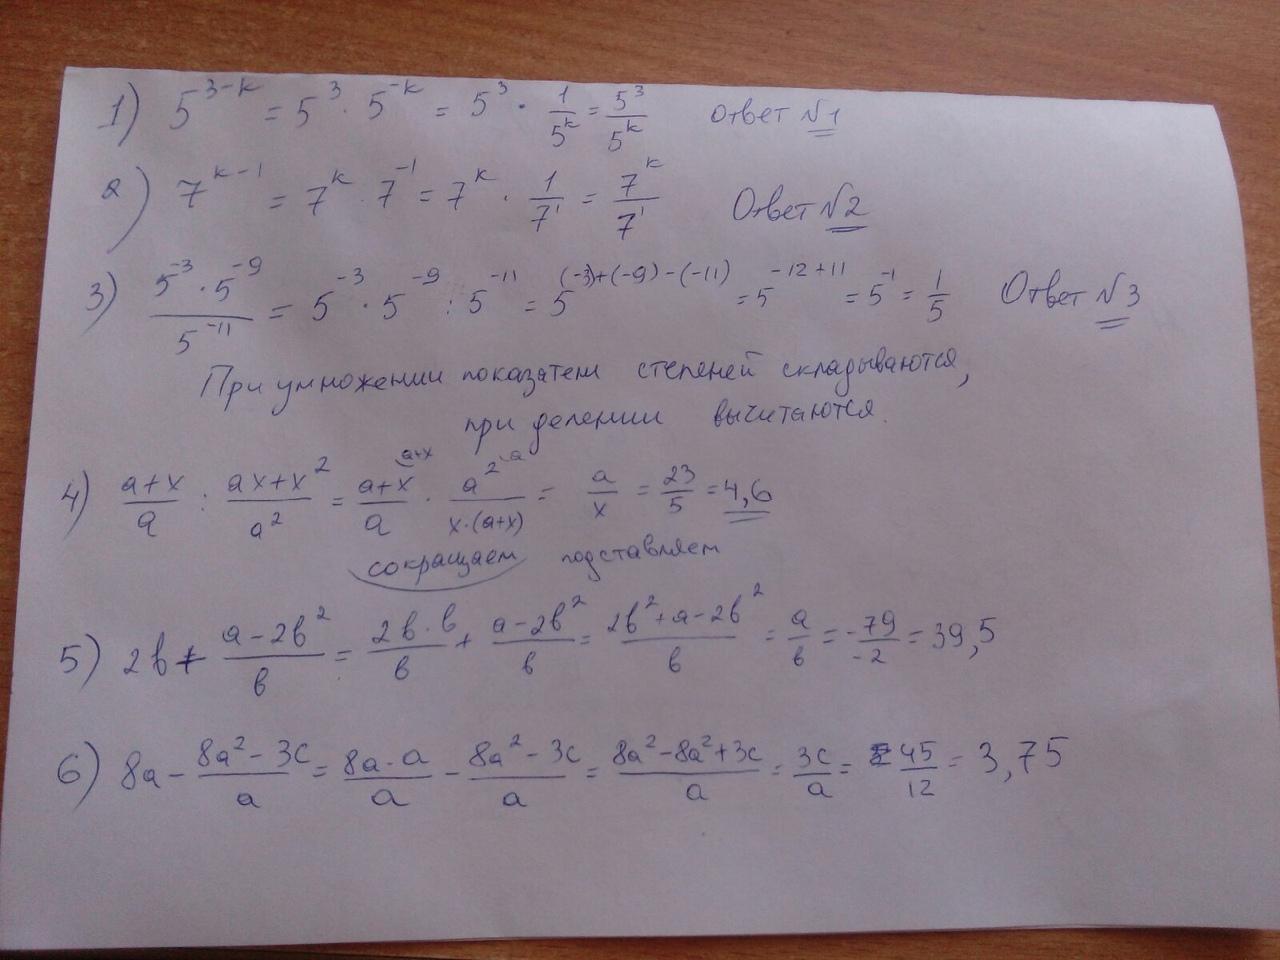 1) 5^{3-k} = 5^3 · 5^{-k} = 5^3 · \frac{1}{5^k} = \frac{5^3}{5^k} ответ №1
2) 7^{k-1} = 7^k · 7^{-1} = 7^k · \frac{1}{7^1} = \frac{7^k}{7^1} Ответ №2
3) \frac{5^{-3} · 5^{-9}}{5^{-11}} = 5^{-3} · 5^{-9} : 5^{-11} = 5^{(-3)+(-9)-(-11)} = 5^{-12+11} = 5^{-1} = \frac{1}{5} Ответ №3
При умножении показатели степеней складываются,
при делении вычитаются.
4) \frac{a+x}{a} : \frac{ax+x^2}{a^2} = \frac{a+x}{a} · \frac{a^2}{x·(a+x)} = \frac{a}{x} = \frac{23}{5} = 4,6
сокращаем подставляем
5) 2в + \frac{a-2в^2}{в} = \frac{2в·в}{в} + \frac{a-2в^2}{в} = \frac{2в^2+a-2в^2}{в} = \frac{a}{в} = \frac{-79}{-2} = 39,5
6) 8a - \frac{8a^2-3c}{a} = \frac{8a·a}{a} - \frac{8a^2-3c}{a} = \frac{8a^2-8a^2+3c}{a} = \frac{3c}{a} = \frac{45}{12} = 3,75